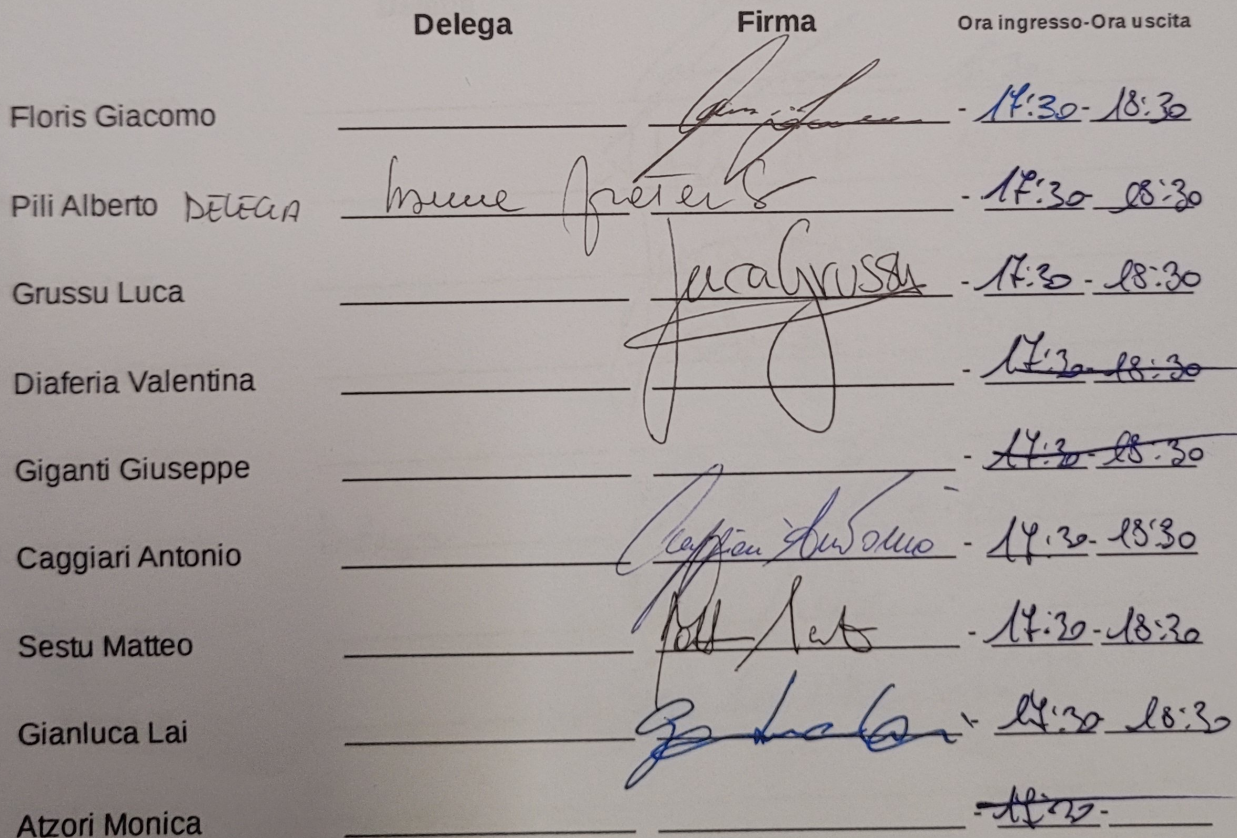 Delega Firma Ora ingresso-Ora uscita
Floris Giacomo - 17:30 - 18:30
Pili Alberto DELEGA - 17:30 - 18:30
Grussu Luca Luca Grussu - 17:30 - 18:30
Diaferia Valentina - 17:30 - 18:30
Giganti Giuseppe - 17:30 - 18:30
Caggiari Antonio Caggiari Antonio - 17:30 - 18:30
Sestu Matteo - 17:30 - 18:30
Gianluca Lai Gianluca Lai - 17:30 - 18:30
Atzori Monica - 17:30 -